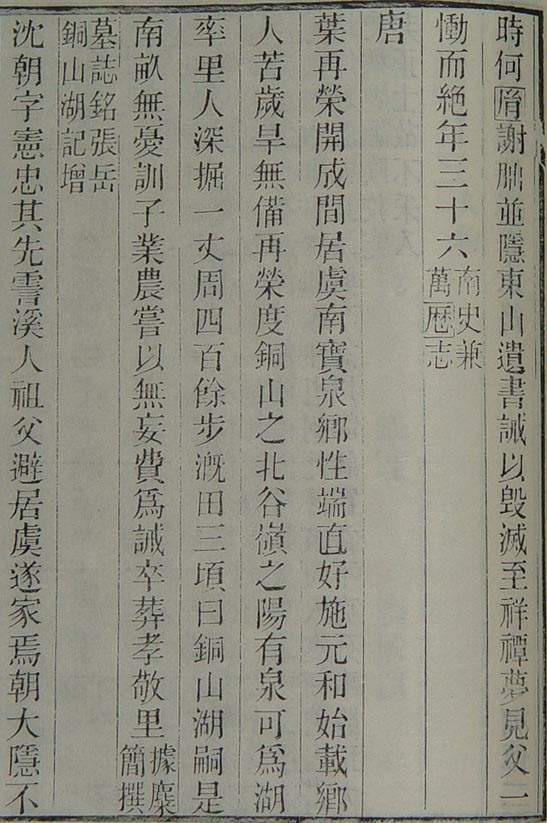 時何胤謝朏並隱東山遺書誡以毀滅至祥禫夢見父一
慟而絕年三十六南史兼萬歷志
唐
葉再榮開成間居虞南寶泉鄉性端直好施元和始載鄉
人苦歲旱無備再榮度銅山之北谷嶺之陽有泉可為湖
率里人深掘一丈周四百餘步溉田三頃曰銅山湖嗣是
南畝無憂訓子業農嘗以無妄費爲誡卒葬孝敬里據麋簡撰
墓誌銘張岳銅山湖記增
沈朝字憲忠其先霅溪人祖父避居虞遂家焉朝大隱不